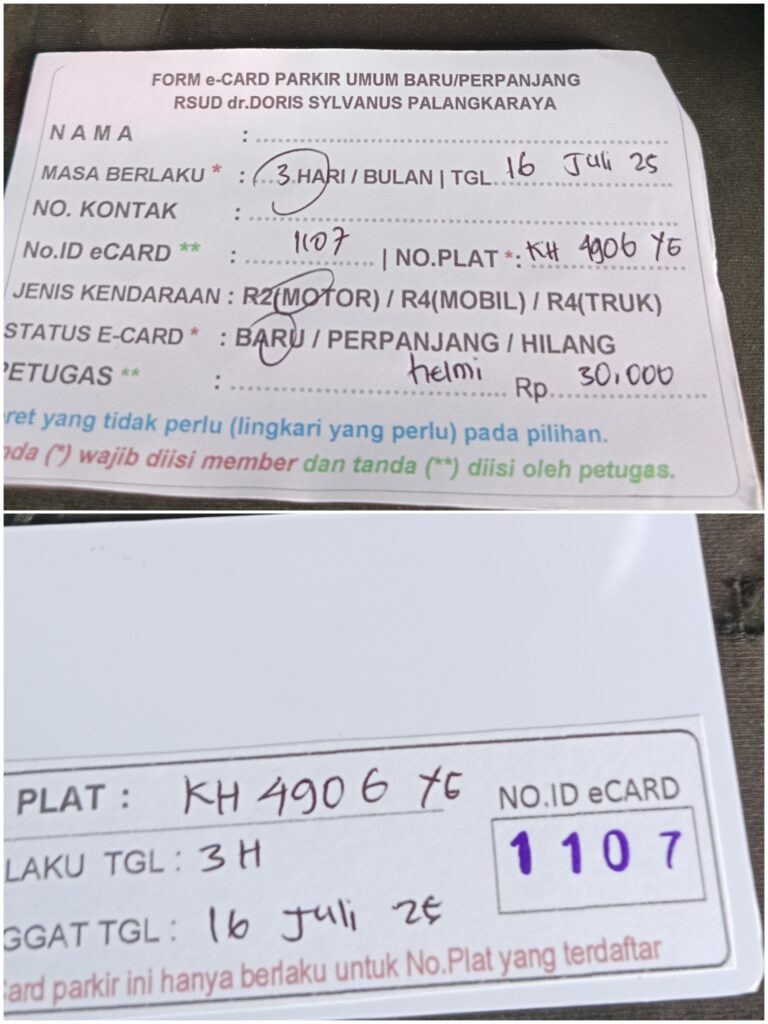 FORM e-CARD PARKIR UMUM BARU/PERPANJANG
RSUD dr.DORIS SYLVANUS PALANGKARAYA
NAMA :
MASA BERLAKU * : 3 HARI / BULAN | TGL 16 Juli 25
NO. KONTAK :
No.ID eCARD ** : 1107 | NO.PLAT *: KH 4906 YE
JENIS KENDARAAN : R2(MOTOR) / R4(MOBIL) / R4(TRUK)
STATUS E-CARD * : BARU / PERPANJANG / HILANG
PETUGAS ** : helmi Rp. 30.000
ret yang tidak perlu (lingkari yang perlu) pada pilihan.
nda (*) wajib diisi member dan tanda (**) diisi oleh petugas.
PLAT : KH 4906 YE
NO.ID eCARD
1107
LAKU TGL : 3 H
GGAT TGL : 16 Juli 25
ard parkir ini hanya berlaku untuk No.Plat yang terdaftar